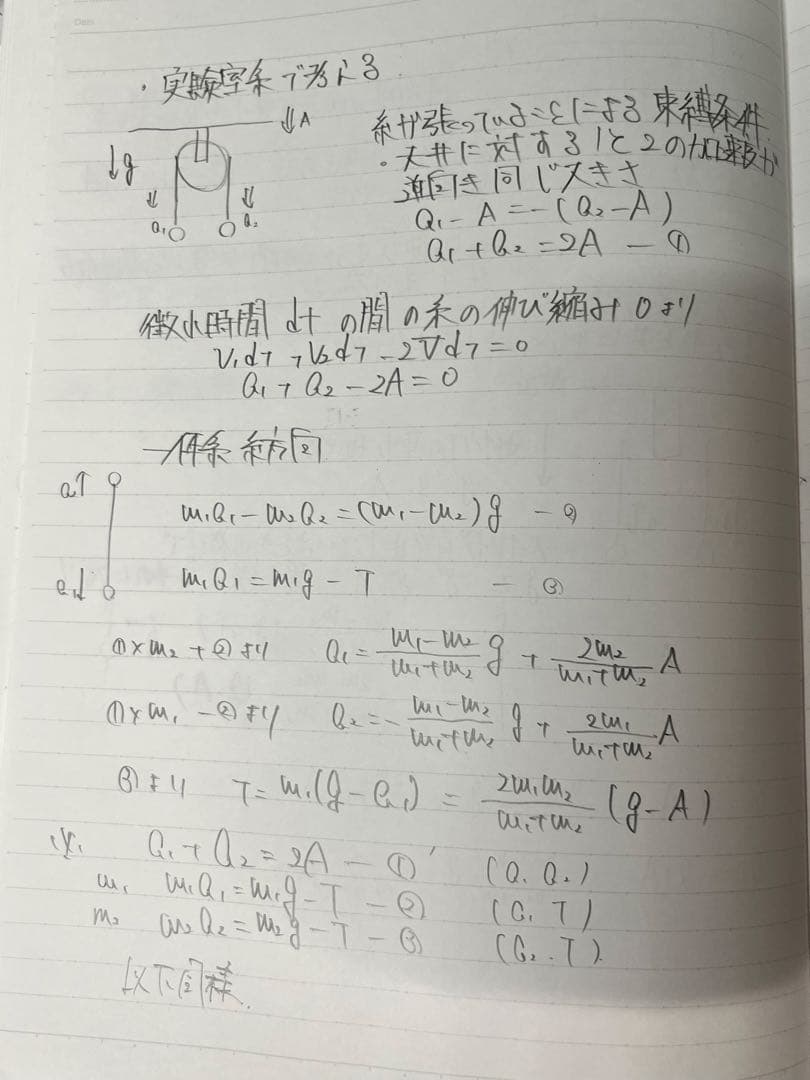 ・実験室系で考える
↓A
糸が張っていることによる束縛条件
↓g
・天井に対する1と2の加速度が
逆向き同じ大きさ
a₁ a₂
a₁-A=-(a₂-A)
a₁+a₂=2A —①
微小時間 dt の間の糸の伸び縮み0より
V₁dt+V₂dt-2Vdt=0
a₁+a₂-2A=0
一体系 糸方向
a↑
m₁a₁-m₂a₂=(m₁-m₂)g —②
a₁↓ m₁a₁=m₁g-T —③
①×m₂+②より a₁=\frac{m₁-m₂}{m₁+m₂}g+\frac{2m₂}{m₁+m₂}A
①×m₁-②より a₂=-\frac{m₁-m₂}{m₁+m₂}g+\frac{2m₁}{m₁+m₂}A
③より T=m₁(g-a₁)=\frac{2m₁m₂}{m₁+m₂}(g-A)
a₁+a₂=2A —①' (a₁ a₂)
m₁ m₁a₁=m₁g-T —② (a₁ T)
m₂ m₂a₂=m₂g-T —③ (a₂.T)
以下同様.